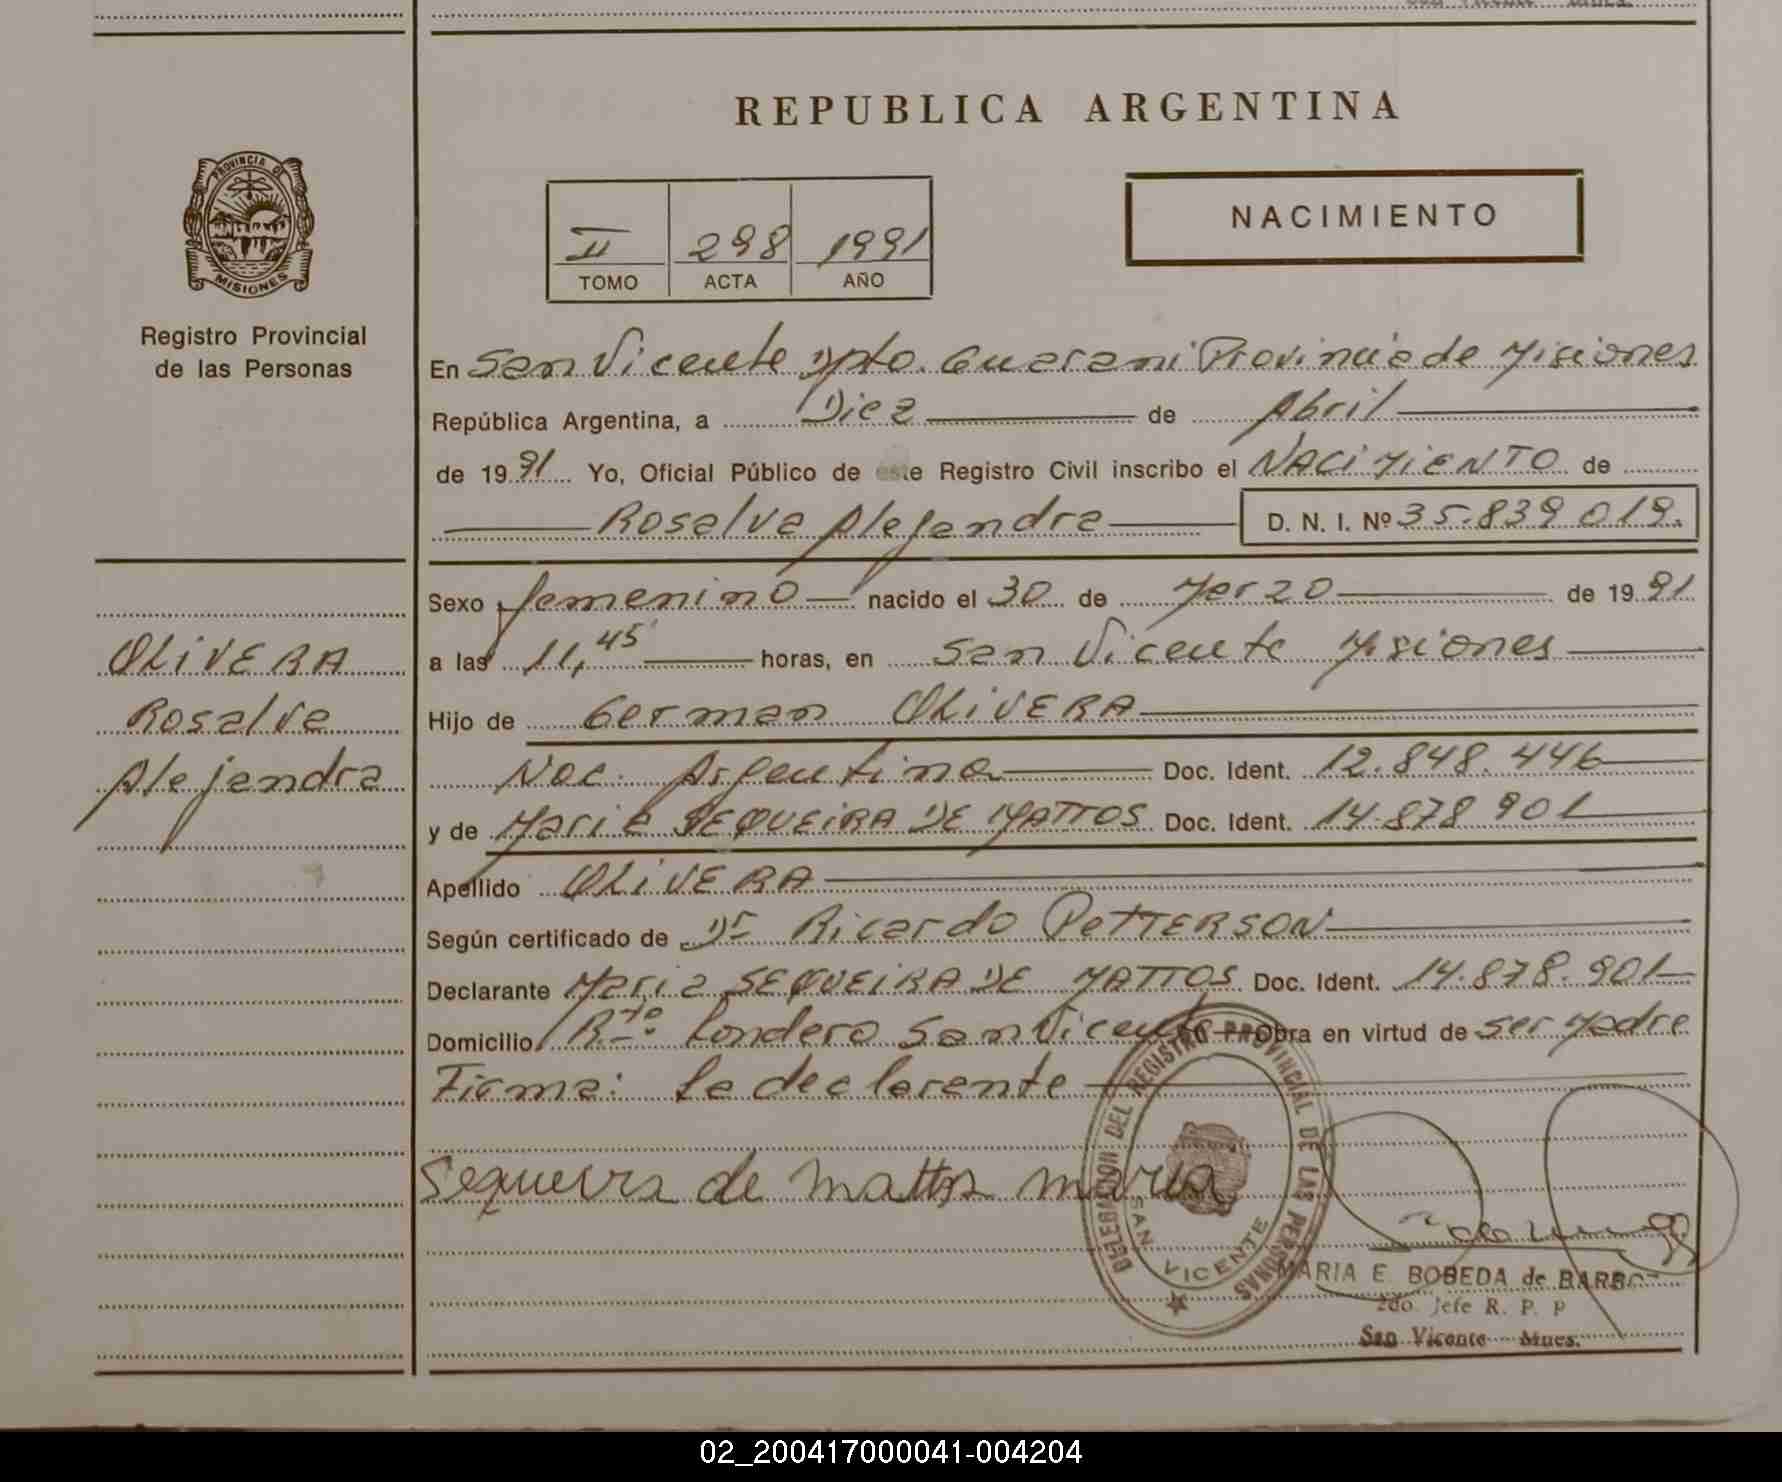 REPUBLICA ARGENTINA
PROVINCIA DE MISIONES
Registro Provincial
de las Personas
II 298 1991
TOMO ACTA AÑO
NACIMIENTO
En San Vicente Dpto. Guarani Provincia de Misiones
República Argentina, a Diez de Abril
de 1991 Yo, Oficial Público de este Registro Civil inscribo el NACIMIENTO de
Rosalva Alejandra D. N. I. Nº 35.839.019.
Sexo femenino nacido el 30 de Marzo de 1991
a las 11,45 horas, en San Vicente Misiones
Hijo de German OLIVERA
Nac. Argentina Doc. Ident. 12.848.446
y de Maria SEQUEIRA DE MATTOS Doc. Ident. 14.878.901
Apellido OLIVERA
Según certificado de Dr Ricardo PETTERSON
Declarante Maria SEQUEIRA DE MATTOS Doc. Ident. 14.878.901
Domicilio Rto. Londero San Vicente Obra en virtud de ser Madre
Firma: La declarante
Sequeira de mattos maria
OLIVERA
Rosalva
Alejandra
DELEGACION DEL REGISTRO PROVINCIAL DE LAS PERSONAS
SAN VICENTE
MARIA E. BOBEDA de
2do. Jefe R. P. P
San Vicente Mnes.
02_200417000041-004204